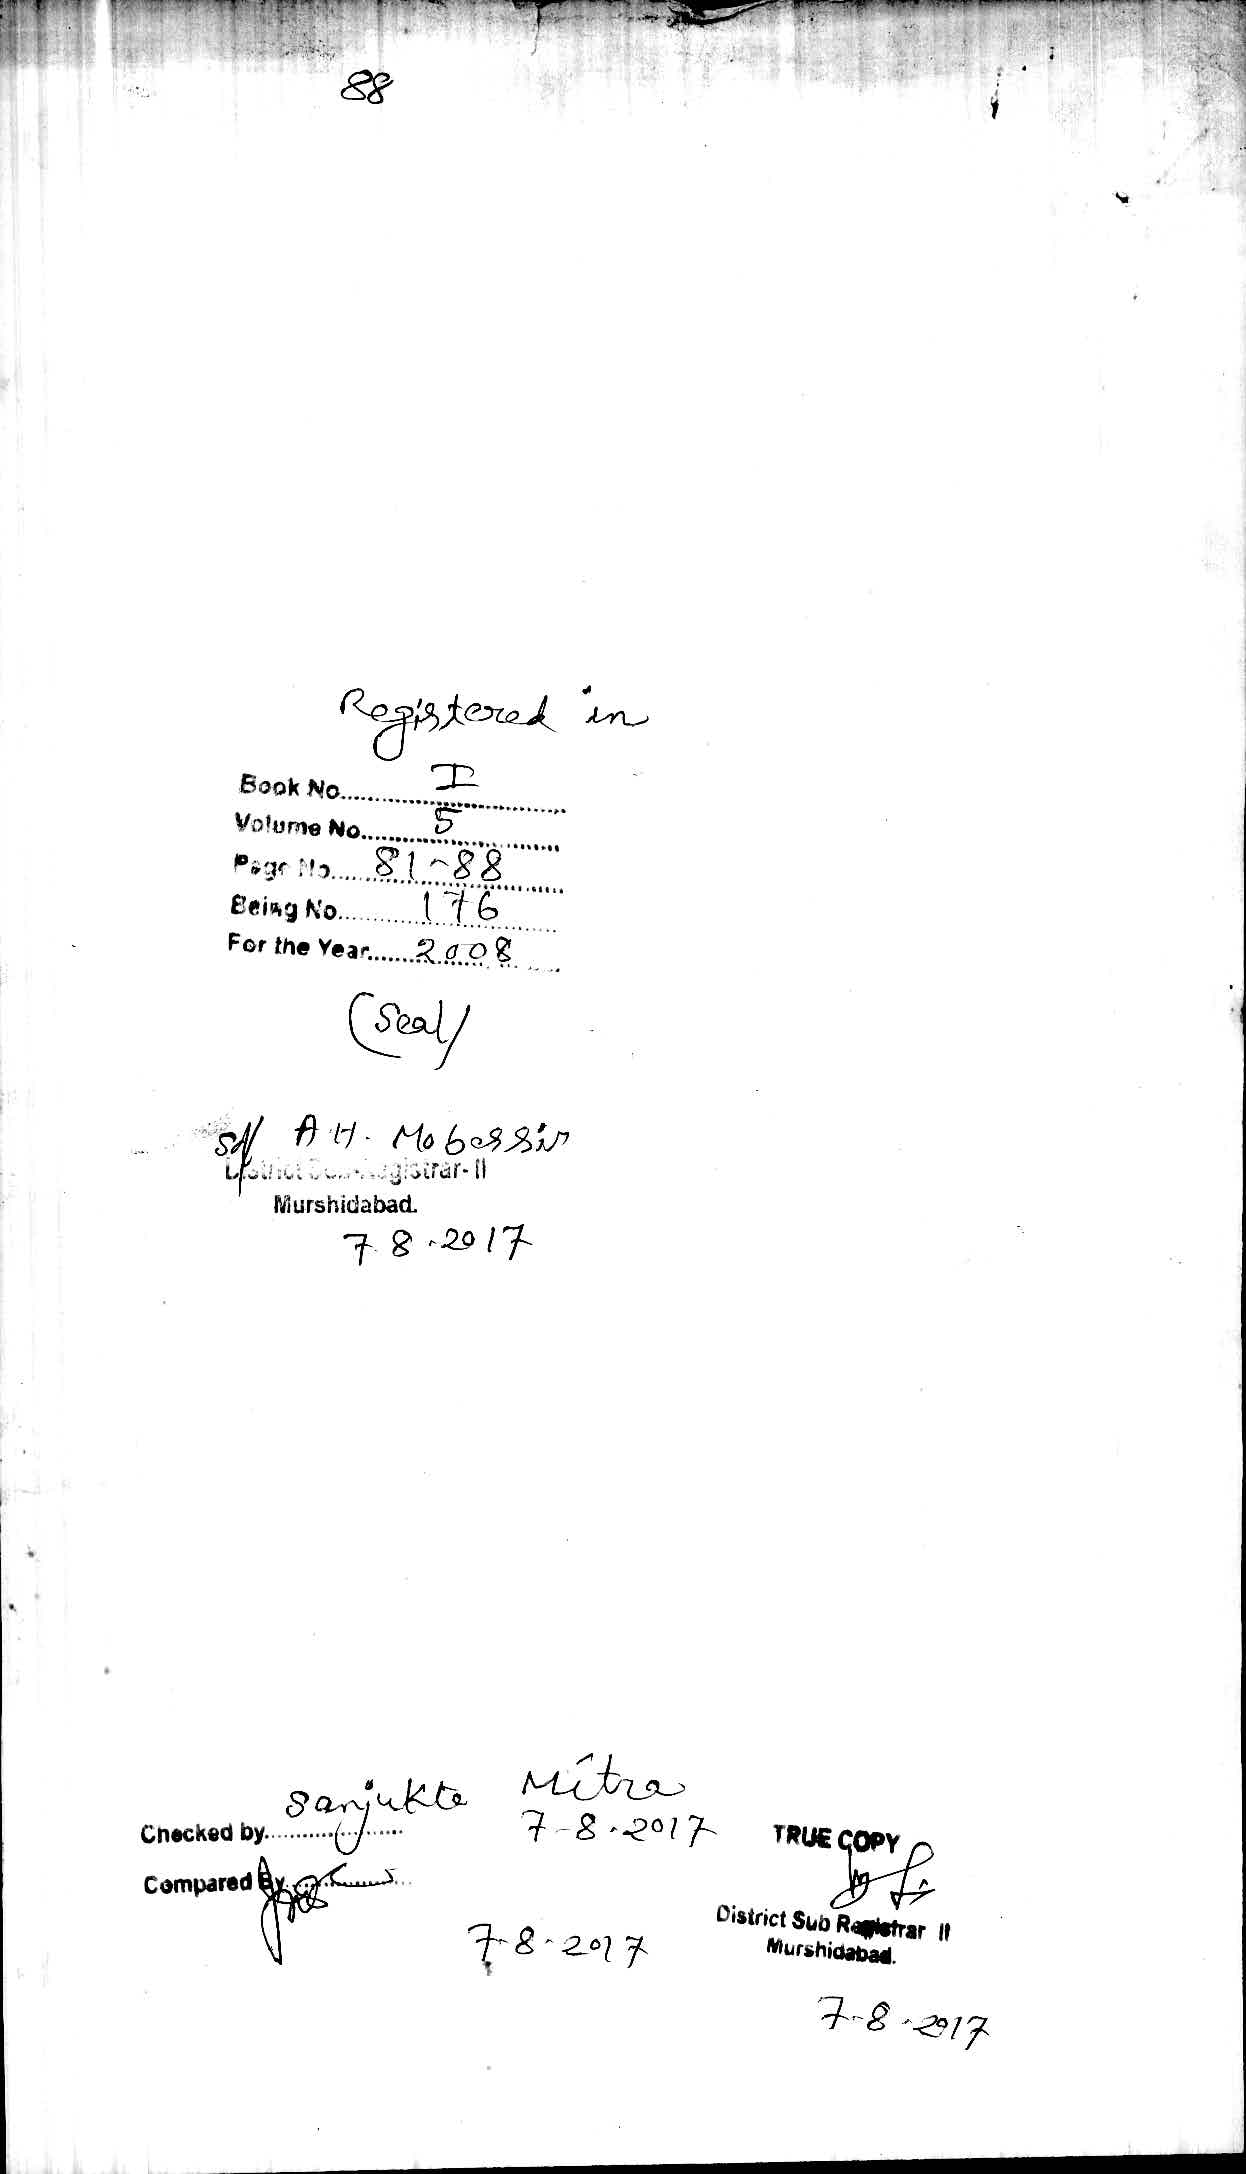 88
Registered in
Book No. I
Volume No. 5
Page No. 81-88
Being No. 176
For the Year 2008
(Seal)
Sd/ A H. Mobassir
District Sub-Registrar-II
Murshidabad.
7 8.2017
Sanjukta Mitra
Checked by 7-8.2017
TRUE COPY
Compared By
District Sub Registrar II
Murshidabad.
7-8-2017
7-8.2017